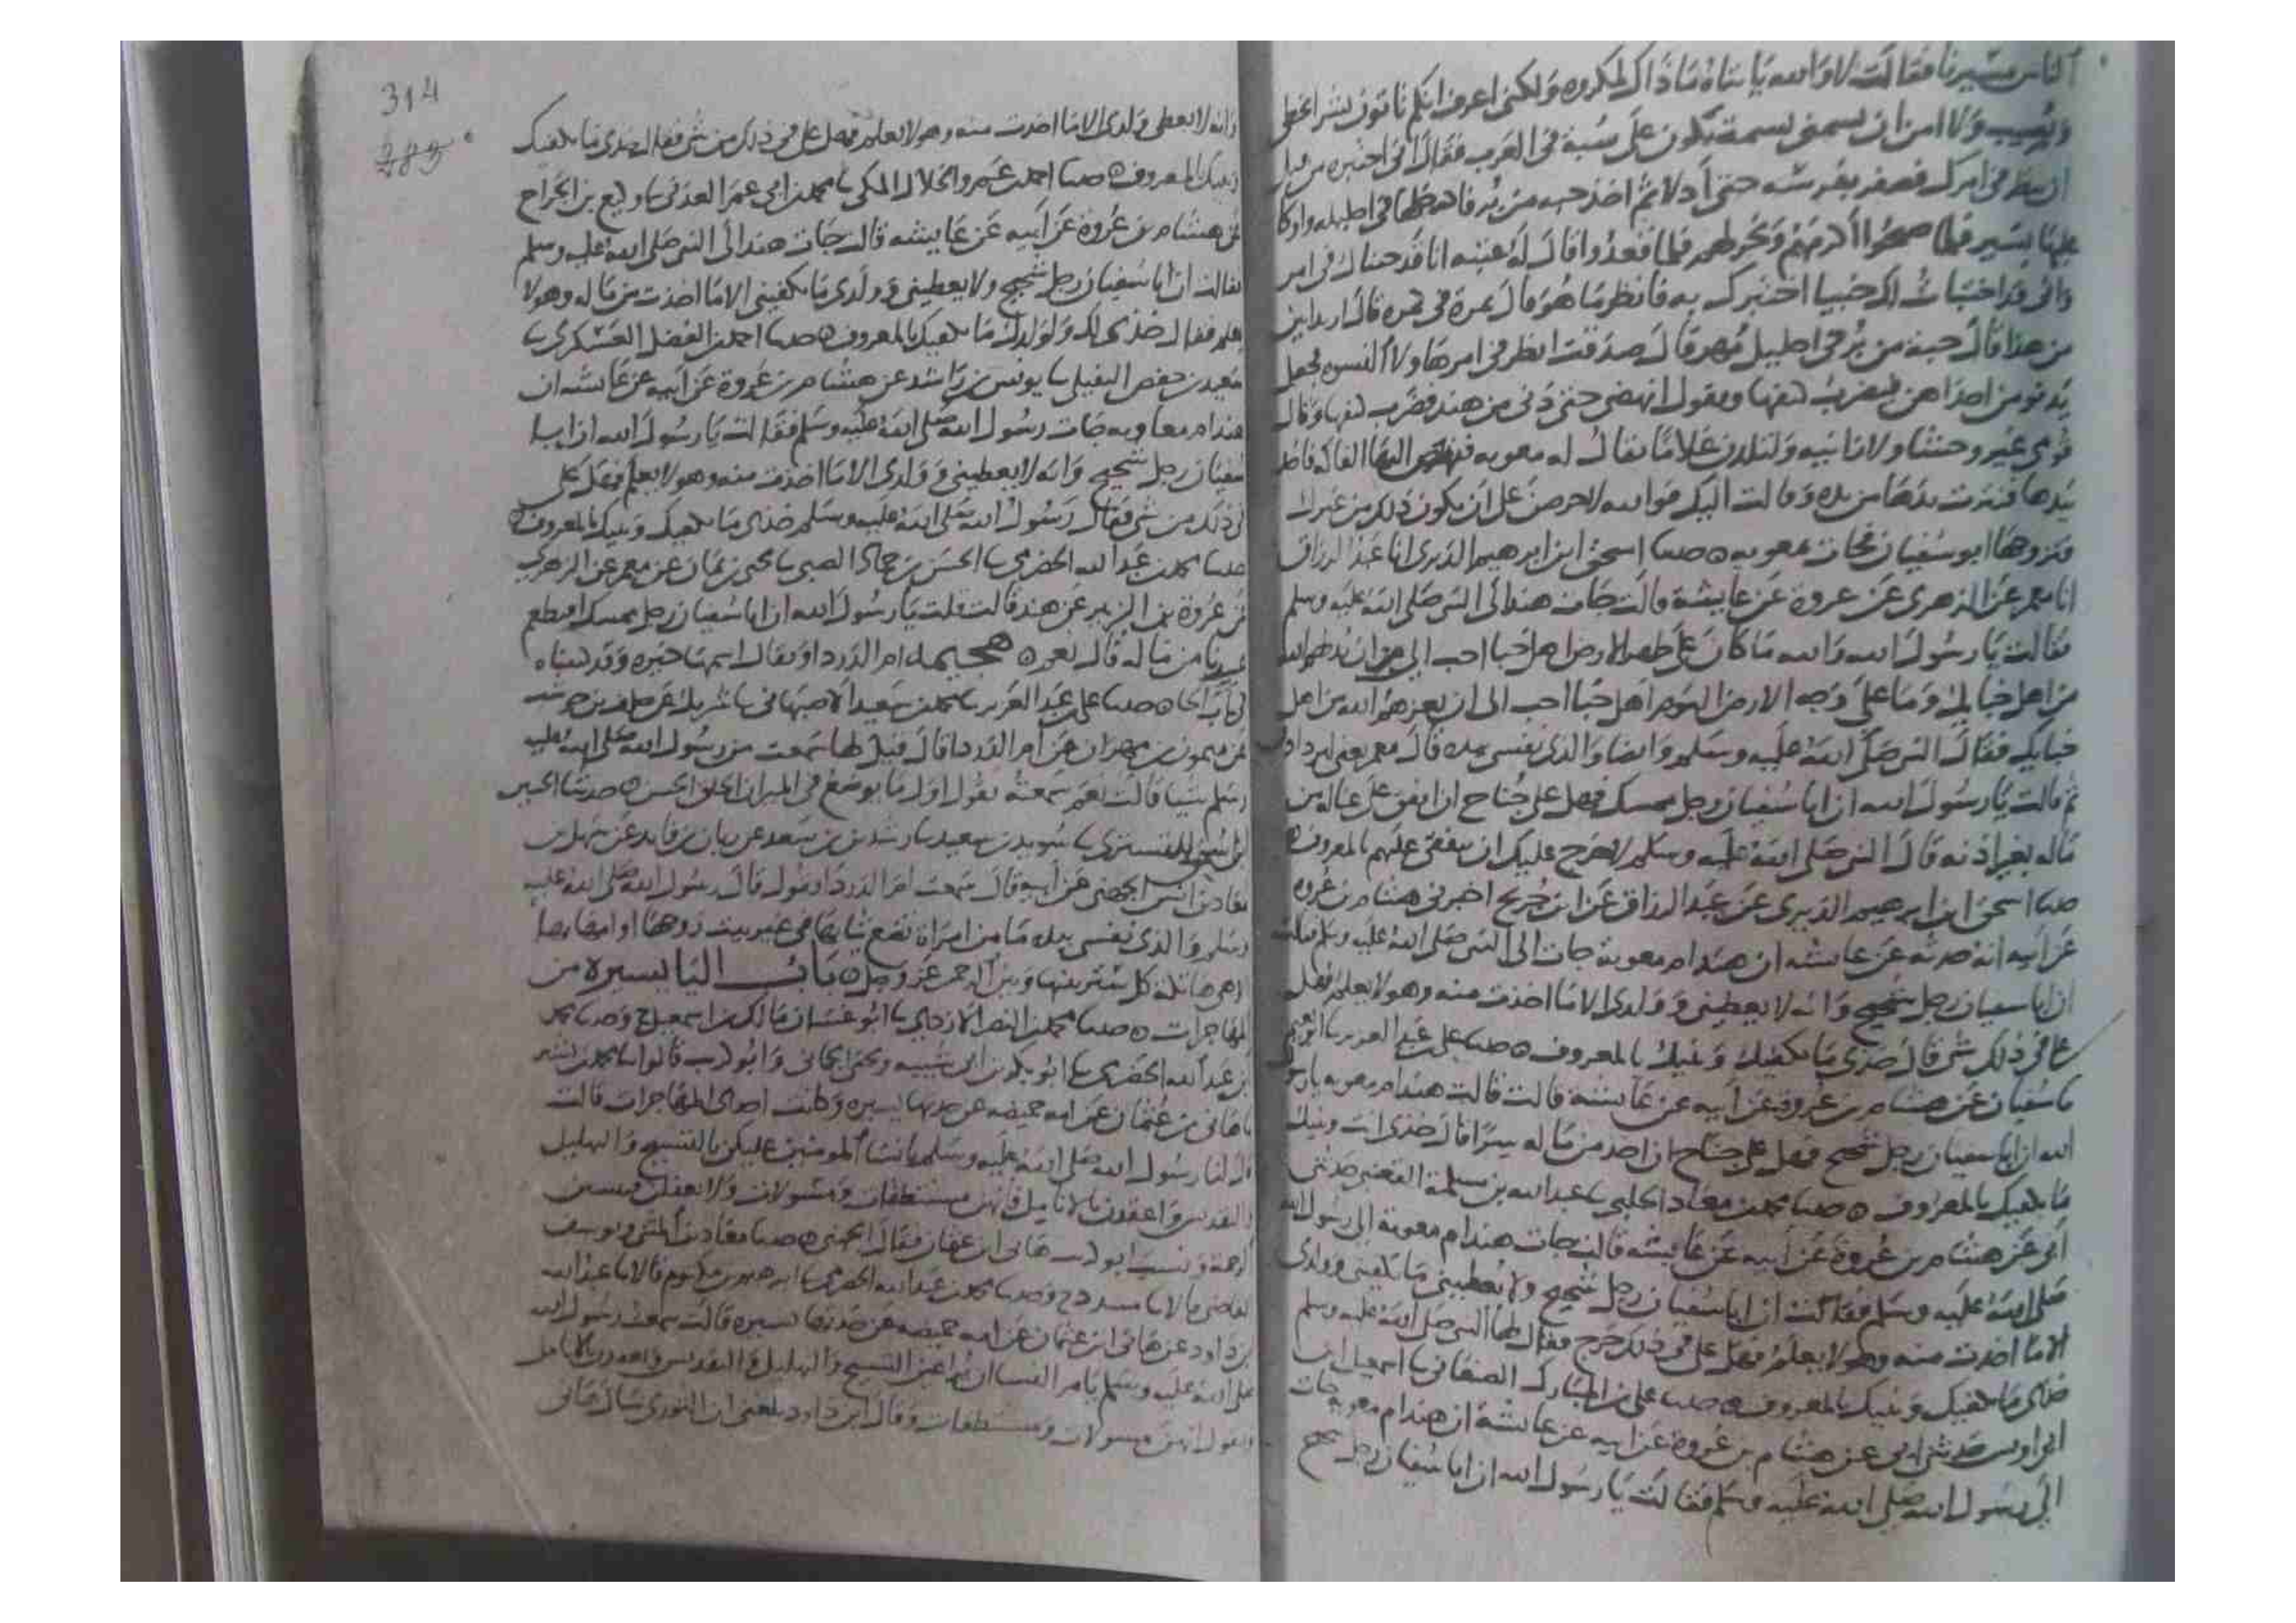 الناس مسيرنا فقالت لا والله يا بتاه ما ذاك لمكروه ولكني اعرف انكم تاتون بشرا يخطي
ويصيب ولا امن ان يسمني بسمة تكون علي سبة في العرب فقال اني اختبره من قبل
ان ينظر في امرك فصفر بفرسه حتى أدلا ثم اخذ حبه من بر فادخلها في احليله واوكا
عليها بسير فلما صبحوا أكرمهم ونحر لهم فلما قعدوا قال له عتبه انا قد جئناك في امر
واني قد اختبات لك خبيا اختبرك به فانظر ما هو قال ثمرة في كمره قال اريد ابين
من هذا قال حبة من بر في احليل مهر قال صدقت انظر في امر هاولا النسوه فجعل
يدنو من احداهن فيضرب كتفها ويقول انهضي حتى دنى من هند فضرب كتفها وقال
قومي غير وحشا ولا زانيه ولتلدن غلاما يقال له معويه فنهض اليها الفاكه فاخذ
بيدها فنثرت يدها من يده وقالت اليك فوالله لاحرصن على ان يكون ذلك من غيرك
فتزوجها ابو سفيان فجات بمعويه ٥ حدثنا اسحق ابن ابرهيم الدبري انا عبد الرزاق
انا معمر عن الزهري عن عروة عن عايشة قالت جات هند الى النبي صلى الله عليه وسلم
فقالت يا رسول الله والله ما كان على ظهر الارض اهل خبا احب الي من ان يذلهم الله
من اهل خبايك وما على وجه الارض اليوم اهل خبا احب الى ان يعزهم الله من اهل
خبايك فقال النبي صلى الله عليه وسلم وايضا والذي نفسي بيده قال معمر يعني لتزدادن
ثم قالت يا رسول الله ان ابا سفيان رجل ممسك فهل علي جناح ان انفق على عياله من
ماله بغير اذنه قال النبي صلى الله عليه وسلم لا حرج عليك ان تنفقي عليهم بالمعروف ٥
حدثنا اسحق ابن ابرهيم الدبري عن عبد الرزاق عن ابن جريج اخبرني هشام بن عروه
عن ابيه انه حدثه عن عايشه ان هند ام معوية جات الى النبي صلى الله عليه وسلم فقالت
ان ابا سفيان رجل شحيح وانه لا يعطيني وولدي الا ما اخذت منه وهو لا يعلم فهل
علي في ذلك شي قال خذي ما يكفيك وبنيك بالمعروف ٥ حدثنا علي بن عبد العزيز نا ابو نعيم
نا سفيان عن هشام بن عروة عن أبيه عن عايشة قالت قالت هند ام معويه يا رسول
الله ان ابا سفيان رجل شحيح فهل علي جناح ان اخذ من ماله سرا قال خذي انت وبنيك
ما يكفيك بالمعروف ٥ حدثنا محمد بن معاذ الحلبي نا عبد الله بن مسلمة القعنبي حدثني
أبي عن هشام بن عروة عن ابيه عن عايشه قالت جات هند ام معوية الى رسول الله
صلى الله عليه وسلم فقالت ان ابا سفيان رجل شحيح ولا يعطيني ما يكفيني وولدي
الا ما اخذت منه وهو لا يعلم فهل علي في ذلك حرج فقال لها النبي صلى الله عليه وسلم
خذي ما يكفيك وبنيك بالمعروف ٥ حدثنا علي بن المبارك الصنعاني نا اسمعيل ابن
ابي اويس حدثني ابي عن هشام بن عروة عن ابيه عن عايشة ان هند ام معويه جات
الى رسول الله صلى الله عليه وسلم فقالت يا رسول الله ان ابا سفيان رجل شحيح
314
285
وانه لا يعطي وولدي الا ما اخذت منه وهو لا يعلم فهل علي في ذلك من شي فقال خذي ما يكفيك
وبنيك بالمعروف ٥ حدثنا احمد بن عمرو الخلال المكي نا محمد بن ابي عمر العدني نا وكيع بن الجراح
عن هشام بن عروة عن أبيه عن عايشه قالت جات هند الى النبي صلى الله عليه وسلم
فقالت ان ابا سفيان رجل شحيح ولا يعطيني وولدي ما يكفيني الا ما اخذت من ماله وهو لا
يعلم فقال خذي لك ولولدك ما يكفيك بالمعروف ٥ حدثنا احمد بن الفضل العسكري نا
سعيد بن حفص النفيلي نا يونس بن راشد عن هشام بن عروة عن أبيه عن عايشه ان
هند ام معاويه جات رسول الله صلى الله عليه وسلم فقالت يا رسول الله ان ابا
سفيان رجل شحيح وانه لا يعطيني وولدي الا ما اخذت منه وهو لا يعلم فهل علي
في ذلك من شي فقال رسول الله صلى الله عليه وسلم خذي ما يكفيك وبنيك بالمعروف ٥
حدثنا محمد بن عبد الله الحضرمي نا الحسن بن حماد الضبي نا يحيى بن يمان عن معمر عن الزهري
عن عروة بن الزبير عن هند قالت قلت يا رسول الله ان ابا سفيان رجل ممسك
من ماله قال نعم ٥ هجيمه ام الدردا ويقال اسمها خيره وقد
حدثنا علي بن عبد العزيز نا محمد بن سعيد الاصبهاني نا شريك عن خلف بن حوشب
عن ميمون بن مهران عن أم الدردا قال قيل لها سمعت من رسول الله صلى الله عليه
وسلم شيا قالت نعم سمعته يقول اول ما يوضع في الميزان الخلق الحسن ٥ حدثنا الحسين
التستري نا سويد بن سعيد نا رشدين بن سعد عن زبان بن فايد عن سهل بن
معاذ بن انس الجهني عن أبيه قال سمعت ام الدردا تقول قال رسول الله صلى الله عليه
وسلم والذي نفسي بيده ما من امراة تضع ثيابها في غير بيت زوجها او
الا هي هاتكة كل ستر بينها وبين الرحمن عز وجل ٥ باب اليا يسيرة من
المهاجرات ٥ حدثنا محمد بن النضر الازدي نا ابو غسان مالك بن اسمعيل ح وحدثنا محمد
بن عبد الله الحضرمي نا ابو بكر بن ابي شيبه ويحيى الحماني وابو كريب قالوا نا محمد بن بشر
نا هاني بن عثمان عن امه حميضه عن جدتها يسيره وكانت احدى المهاجرات قالت
قال لنا رسول الله صلى الله عليه وسلم يا نسا المومنين عليكن بالتسبيح والتهليل
والتقديس واعقدن بالانامل فانهن مستنطقات ومسولات ولا تغفلن فتنسين
الرحمة ونسب ابو كريب هاني ابن عثمان فقال الجهني ٥ حدثنا معاذ بن المثنى ويوسف
القاضي قالا نا مسدد ح وحدثنا محمد بن عبد الله الحضرمي نا ابرهيم بن مكتوم قالا نا عبد الله
بن داود عن هاني ابن عثمان عن امه حميضه عن جدتها يسيره قالت سمعت رسول الله
صلى الله عليه وسلم يامر النسا ان يراعين التسبيح والتهليل والتقديس ويعقدن بالانامل
ويقول انهن مسولات ومستنطقات وقال ابن داود بلغني ان الثوري سال هاني